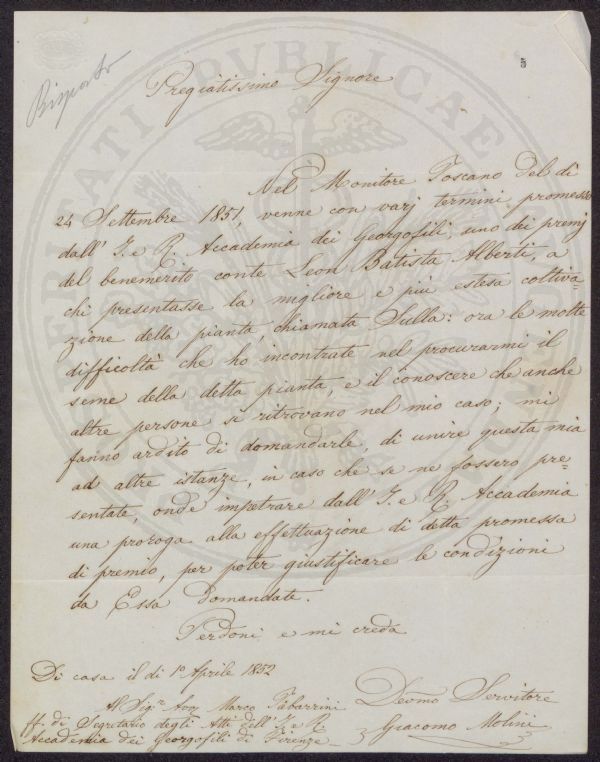 5
Risposto
Pregiatissimo Signore
Nel Monitore Toscano del dì
24 Settembre 1851, venne con varj termini promesso
dall' I. e R. Accademia dei Georgofili, uno dei premj
del benemerito conte Leon Batista Alberti, a
chi presentasse la migliore e più estesa coltiva=
zione della pianta, chiamata Sulla: ora le molte
difficoltà che ho incontrate nel procurarmi il
seme della detta pianta, e il conoscere che anche
altre persone si ritrovano nel mio caso; mi
fanno ardito di domandarle, di unire questa mia
ad altre istanze, in caso che se ne fossero pre=
sentate, onde impetrare dall' I. e R. Accademia
una proroga alla effettuazione di detta promessa
di premio, per poter giustificare le condizioni
da Essa domandate.
Perdoni e mi creda
Di casa il dì 1º Aprile 1852
Al Sigr. Avv. Marco Tabarrini
ff. di Segretario degli Atti dell' I. e R.
Accademia dei Georgofili di Firenze
Devmo Servitore
Giacomo Molini